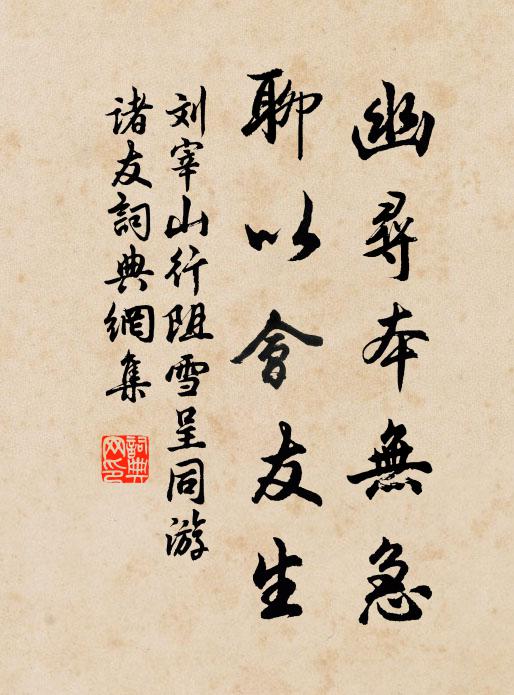 幽尋本無急
聊以會友生
刘宰山行阻雪呈同游
诸友詞典網集
詞典
网印